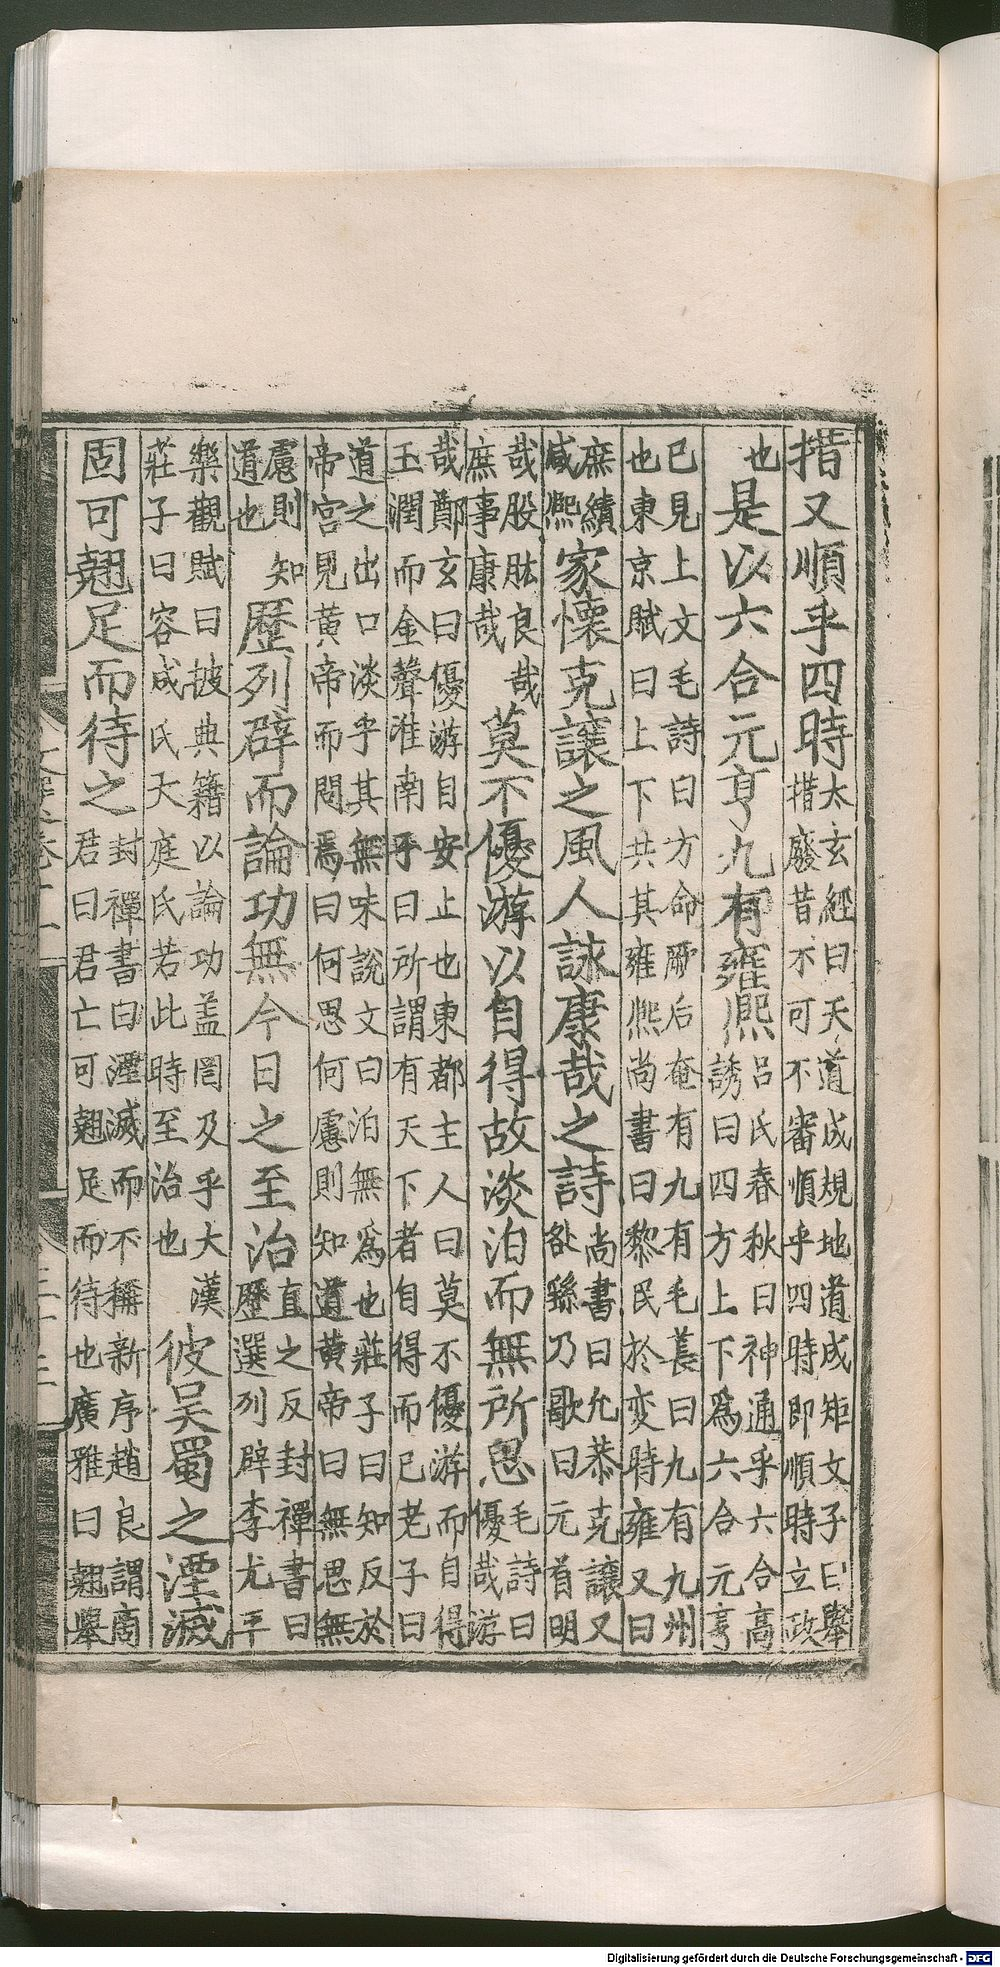 措又順乎四時太玄經曰天道成規地道成矩文子曰舉措廢昔不可不審順乎四時即順時立政
也是以六合元亨九有雍熙呂氏春秋曰神通乎六合高誘曰四方上下為六合元亨
已見上文毛詩曰方命厥后奄有九有毛萇曰九有九州也東京賦曰上下共其雍熙尚書曰黎民於変時雍又曰
庶績咸熙家懷克讓之風人詠康哉之詩尚書曰允恭克讓又咎繇乃歌曰元首明
哉股肱良哉庶事康哉莫不優游以自得故淡泊而無所思毛詩曰優哉游
哉鄭玄曰優游自安止也東都主人曰莫不優游而自得玉潤而金聲淮南乎曰所謂有天下者自得而已老子曰
道之出口淡乎其無味說文曰泊無為也莊子曰知反於帝宮見黃帝而問焉曰何思何慮則知道黃帝曰無思無
慮則知道也歷列辟而論功無今日之至治直之反封禪書曰歷選列辟李尤平
樂觀賦曰披典籍以論功盖罔及乎大漢莊子曰容成氏大庭氏若此時至治也彼吳蜀之湮滅
固可翹足而待之封禪書曰湮滅而不稱新序趙良謂商君曰君亡可翹足而待也廣雅曰翹舉
Digitalisierung gefördert durch die Deutsche Forschungsgemeinschaft - DFG